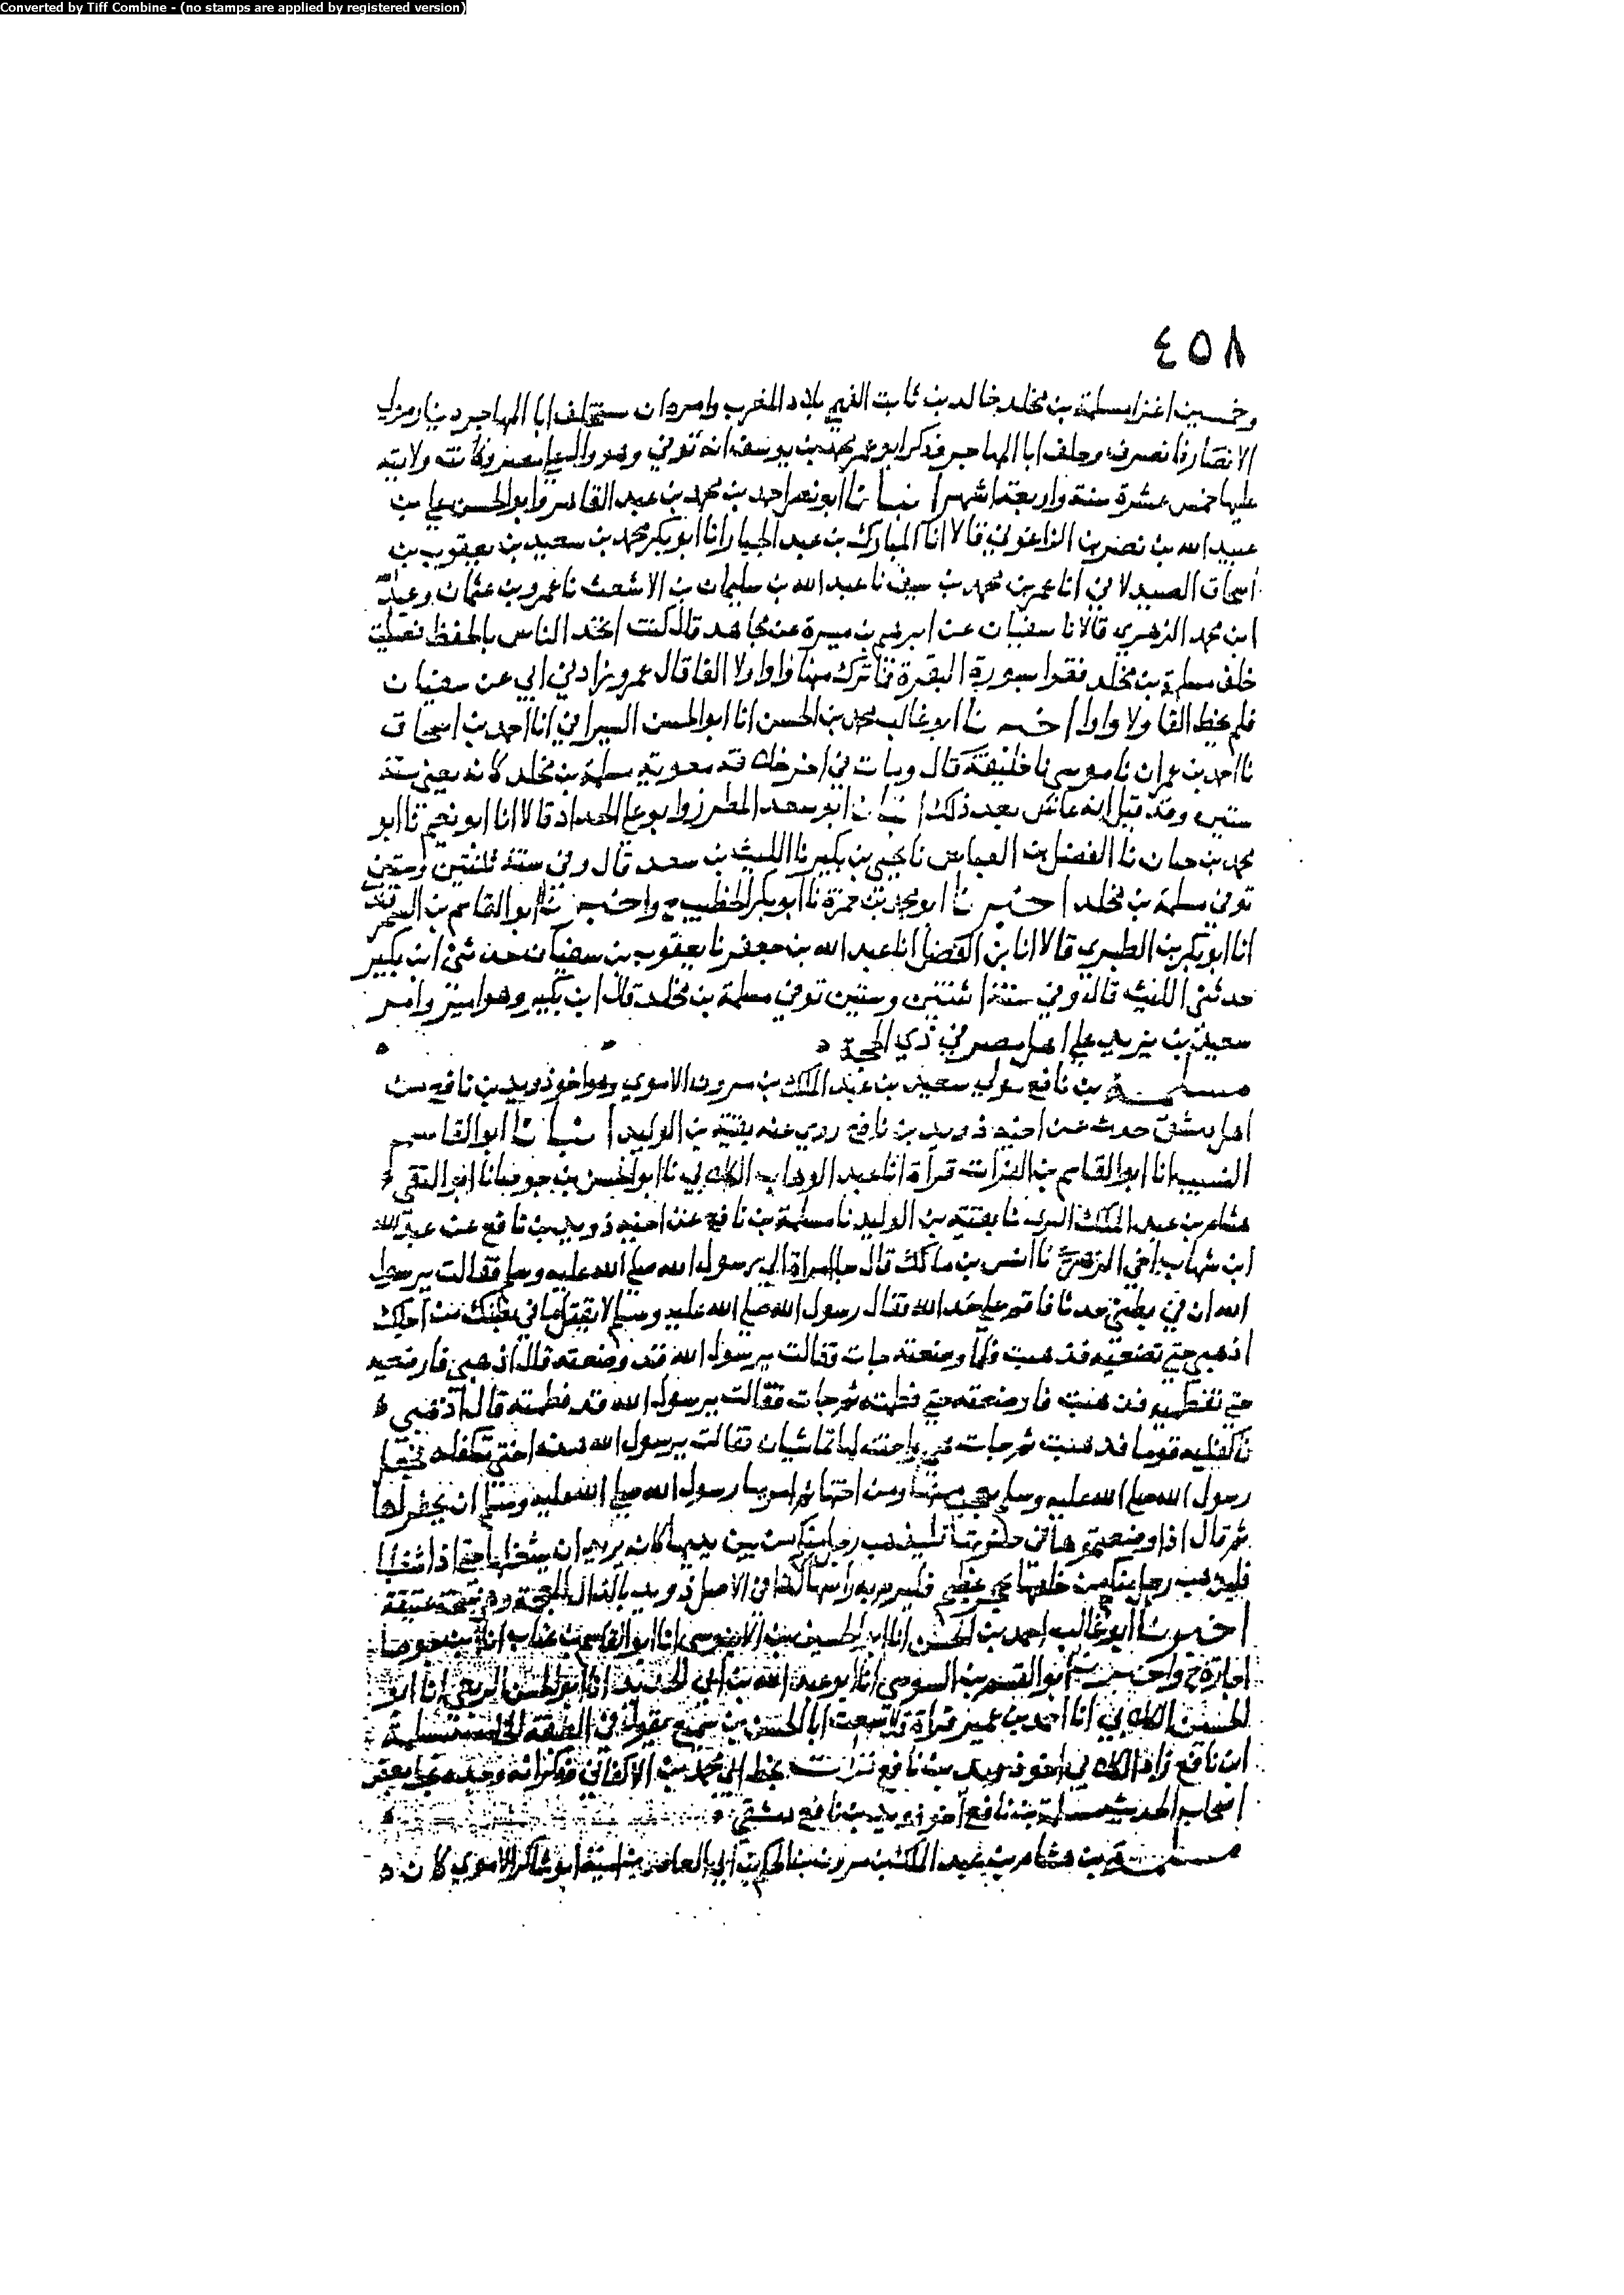 Converted by Tiff Combine - (no stamps are applied by registered version)
٤٥٨
وخمسين اغزا مسلمة بن مخلد خالد بن ثابت الفهمي بلاد المغرب وامره ان يستخلف ابا المهاجر دينار مولى
الانصار فانصرف وخلف ابا المهاجر وذكر ابو عمر محمد بن يوسف انه توفي وهو والي على مصر وكانته ولايته
عليها خمس عشرة سنة واربعة اشهر انبانا ابو نصر احمد بن محمد بن عبد القاهر وابو الحسن علي بن
عبيد الله بن نصر بن الزاغوني قالا انا المبارك بن عبد الجبار انا ابو بكر محمد بن سعيد بن يعقوب بن
اسحاق الصيدلاني انا عمر بن محمد بن سيف نا عبد الله بن سليمان بن الاشعث نا عمرو بن عثمان وعبد الله
ابن محمد الزهري قالا نا سفيان عن ابرهيم بن ميسرة عن مجاهد قال كنت اتحد الناس بالحفظ فصليت
خلف مسلمة بن مخلد فقرا سورة البقرة فما ترك منها واوا ولا الفا قال عمرو زادني ابي عن سفيان
فلم يخط الفا ولا واوا اخبرنا ابو غالب محمد بن الحسن انا ابو الحسن السيرافي انا احمد بن اسحاق
نا احمد بن عمران نا موسى نا خليفة قال ومات في اخر خلافة معوية مسلمة بن مخلد كانه يعني سنة
ستين وقد قيل انه عاش بعد ذلك انبانا ابو سعد المطرز وابو علي الحداد قالا انا ابو نعيم نا ابو
محمد بن حيان نا الفضل بن العباس نا يحيى بن بكير نا الليث بن سعد قال وفي سنة ثنتين وستين
توفي مسلمة بن مخلد اخبرنا ابو محمد بن حمزة نا ابو بكر الخطيب ح واخبرنا ابو القاسم بن السمرقندي
انا ابو بكر بن الطبري قالا انا بن الفضل انا عبد الله بن جعفر نا يعقوب بن سفيان حدثني ابن بكير
حدثني الليث قال وفي سنة اثنتين وستين توفي مسلمة بن مخلد قال ابن بكير وهو امير وامر
سعيد بن يزيد علي اهل مصر في ذي الحجة
مسلمة بن نافع مولى سعيد بن عبد الملك بن مرون الاموي وهو اخو ذويد بن نافع من
اهل دمشق حدث عن اخيه ذويد بن نافع روى عنه بقية بن الوليد انبانا ابو القاسم
النسيب انا ابو القاسم بن الفرات قراة انا عبد الوهاب الكلابي نا ابو الحسن بن جوصا نا ابو التقي
هشام بن عبد الملك نا بقية بن الوليد نا مسلمة بن نافع عن اخيه ذويد بن نافع عن عبد الله
ابن شهاب اخي الزهري نا انس بن مالك قال جات امراة الى رسول الله صلى الله عليه وسلم فقالت يرسول
الله ان في بطني حدثا فاقم علي حد الله فقال رسول الله صلى الله عليه وسلم لا يقتل ما في بطنك من اجلك
اذهبي حتى تضعيه فذهبت فلما وضعته جات وقالت يرسول الله قد وضعته قال اذهبي فارضعيه
حتى تفطميه فذهبت فارضعته حتى فطمته ثم جات فقالت يرسول الله قد فطمته قال اذهبي
فاكفليه قوما فذهبت ثم جات هي واخته لها تماشيان فقالت يرسول الله هذه اختي تكفله
رسول الله صلى الله عليه وسلم منها ومن اختها ثم امر بها رسول الله صلى الله عليه وسلم ان يحفر لها
ثم قال اذا وضعتموها في حفرتها فليذهب رجل منكم بين يديها كانه يريد ان يشغلها حتى اذا شغلها
فليذهب رجل منكم من خلفها بحجر عظيم فليرم به راسها كذا في الاصل ذويد بالذال المعجمة وهي نسخة عتيقة
اخبرنا ابو غالب احمد بن الحسن انا ابو الحسين بن الابنوسي انا ابو القاسم بن عتاب انا ابن جوصا
اجازة ح واخبرنا ابو القسم بن السوسي انا ابو عبد الله بن ابي الحديد انا ابو الحسن الربعي انا ابو
الحسين الكلابي انا احمد بن عمير قراة قال سمعت ابا الحسن بن سميع يقول في الطبقة الخامسة مسلمة
ابن نافع زاد الكلابي اخو ذويد بن نافع قرات بخط ابي محمد بن الاكفاني وذكر انه وجده بخط بعض
اصحاب الحديث مسلمة بن نافع اخو ذويد بن نافع دمشقي
مسلمة بن هشام بن عبد الملك بن مرون بن الحكم بن ابي العاص بن امية ابو شاكر الاموي كان